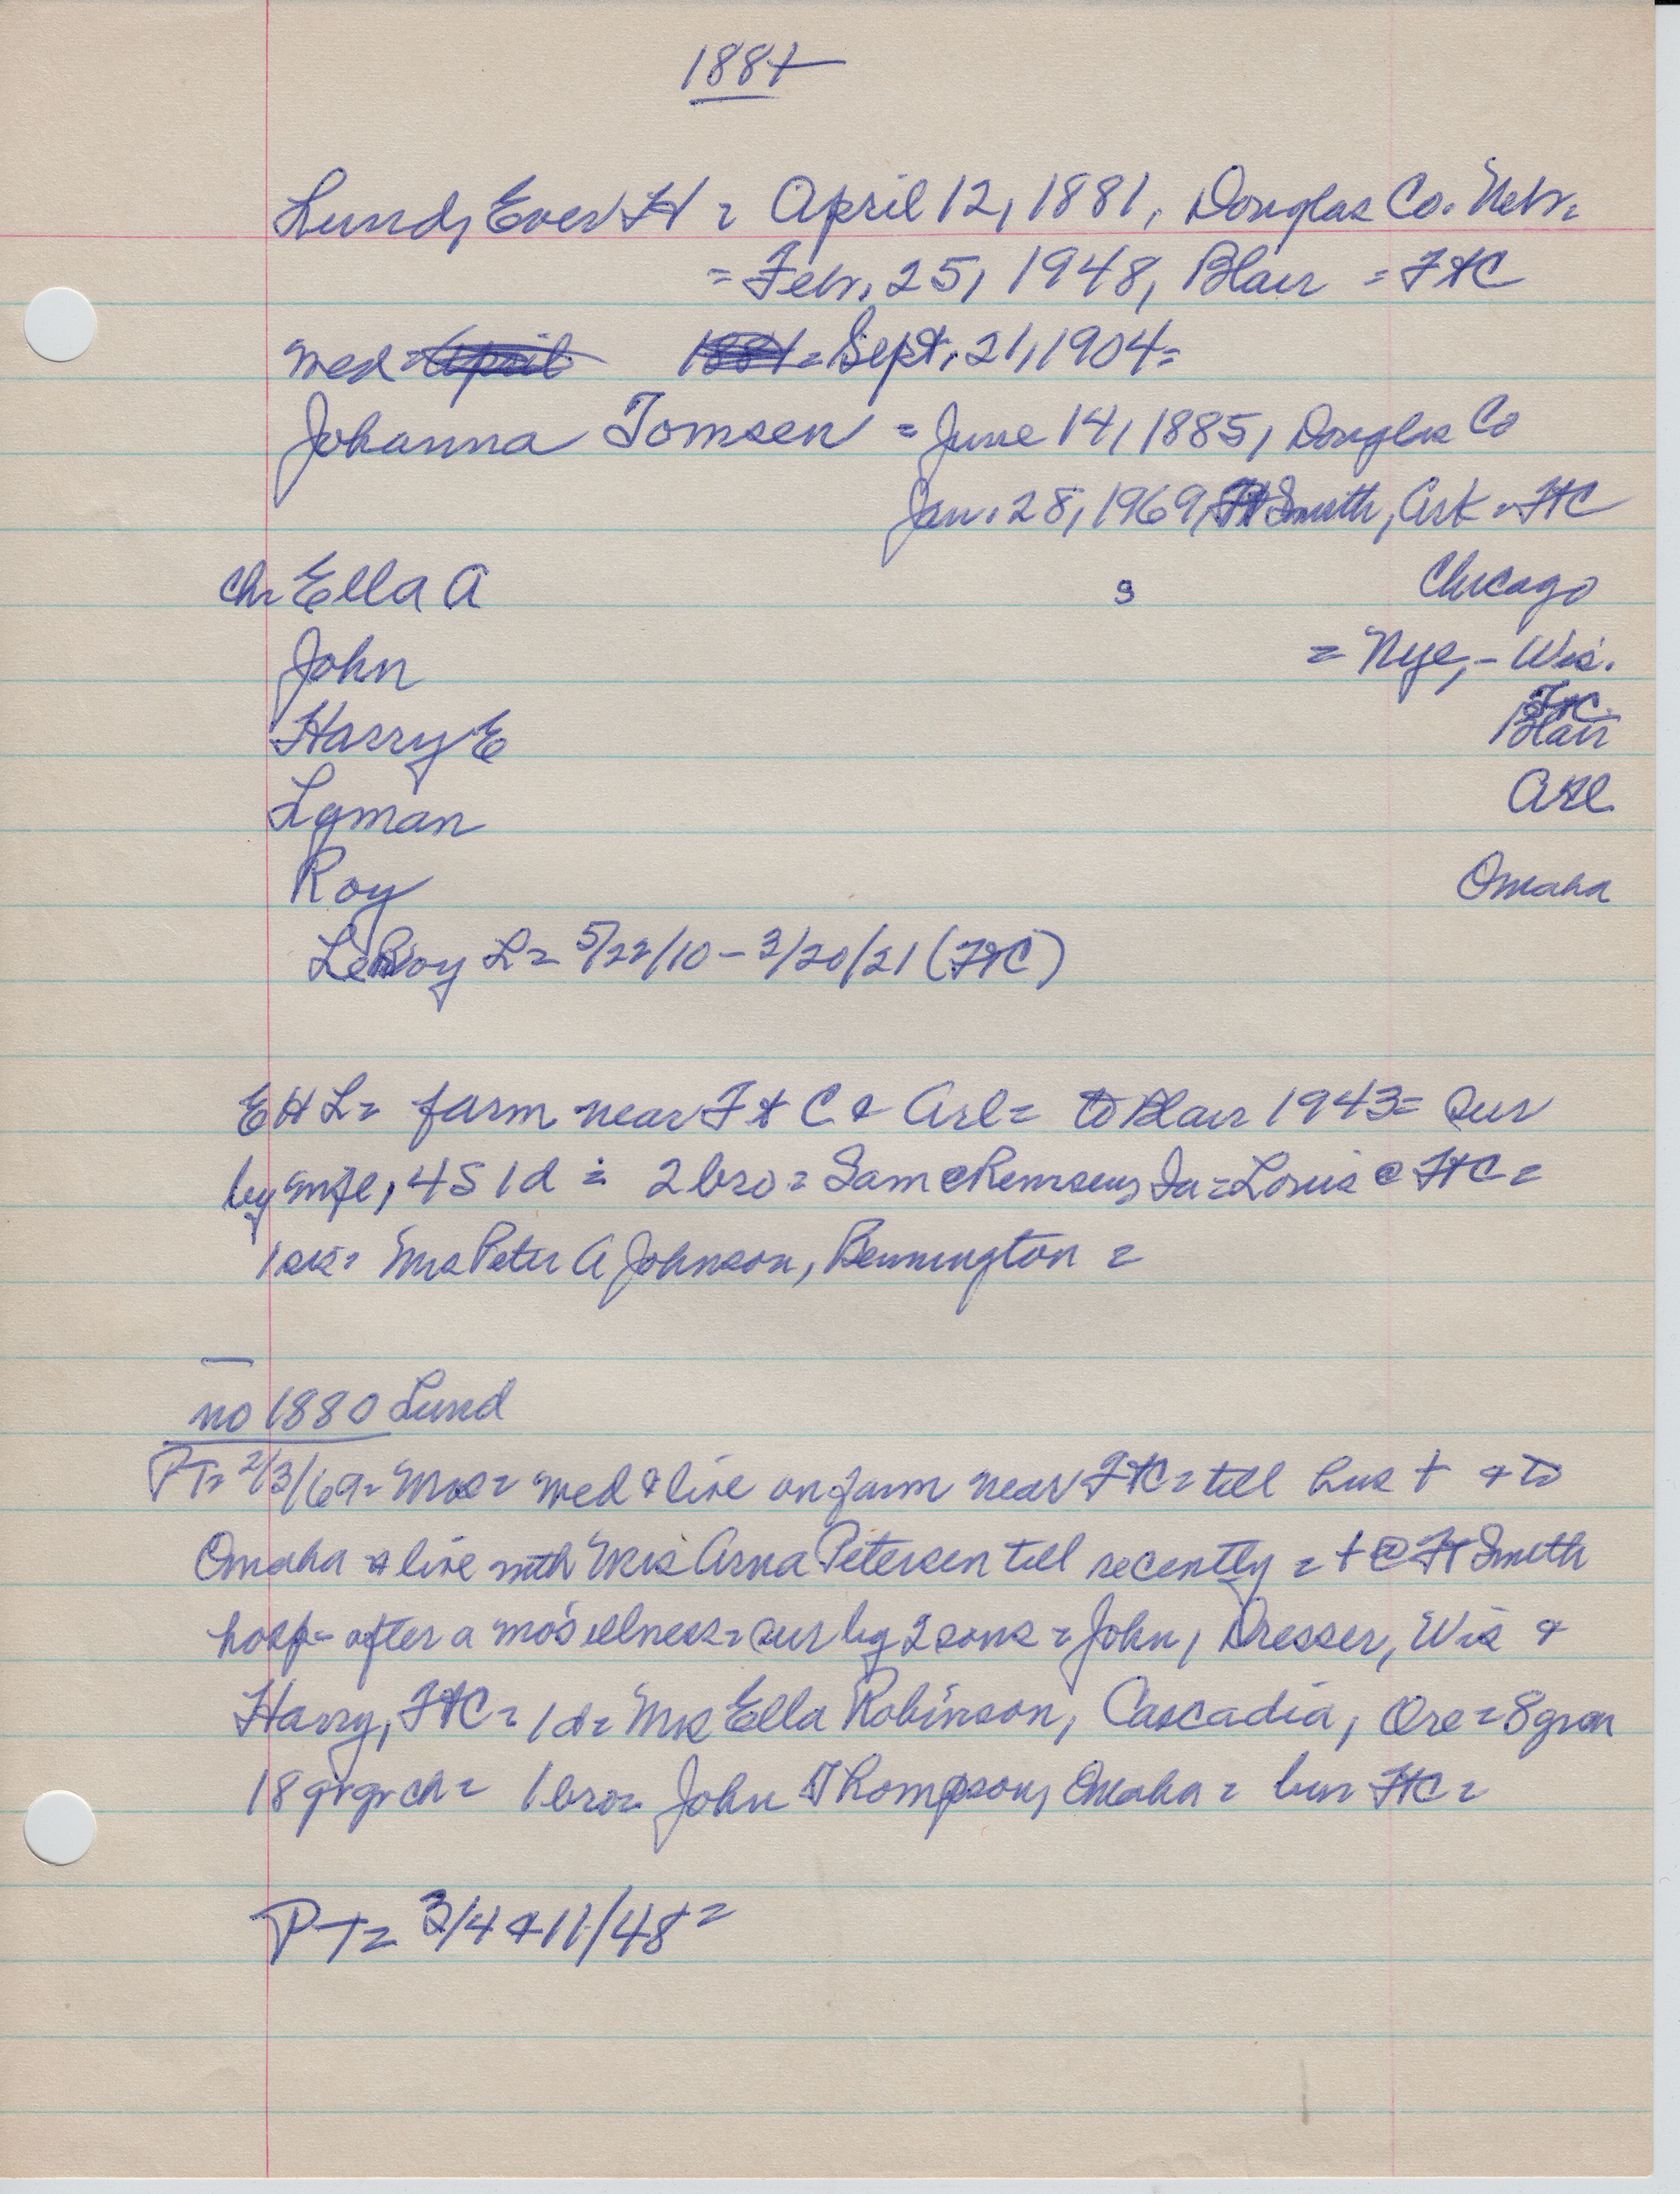 1881
Lund, Ever H = April 12, 1881, Douglas Co. Nebr.
= Febr. 25, 1948, Blair = FtC
med = April 1881 = Sept. 21, 1904 =
Johanna Tomsen = June 14, 1885, Douglas Co
Jan. 28, 1969, Ft Smith, Ark = FtC
ch = Ella A s Chicago
John = Nye, - Wis.
FtC.
Harry E Blair
Lyman Arl
Roy Omaha
LeRoy L = 5/22/10 - 3/20/21 (FtC)
E H L = farm near Ft C & Arl = to Blair 1943 = sur
by wife, 4 S 1 d = 2 bro = Sam @ Remsen, Ia = Louis @ FtC =
1 sis = Mrs Peter A Johnson, Bennington =
no 1880 Lund
PT = 2/3/69 = Mrs = med & live on farm near FtC = till hus † & to
Omaha & live with Mrs Arna Petersen till recently = † @ Ft Smith
hosp - after a mo's illness = sur by 2 sons = John, Dresser, Wis &
Harry, FtC = 1 d = Mrs Ella Robinson, Cascadia, Ore = 8 gran
18 gr gr ch = 1 bro = John Thompson, Omaha = bur FtC =
PT = 3/4 & 11/48 =